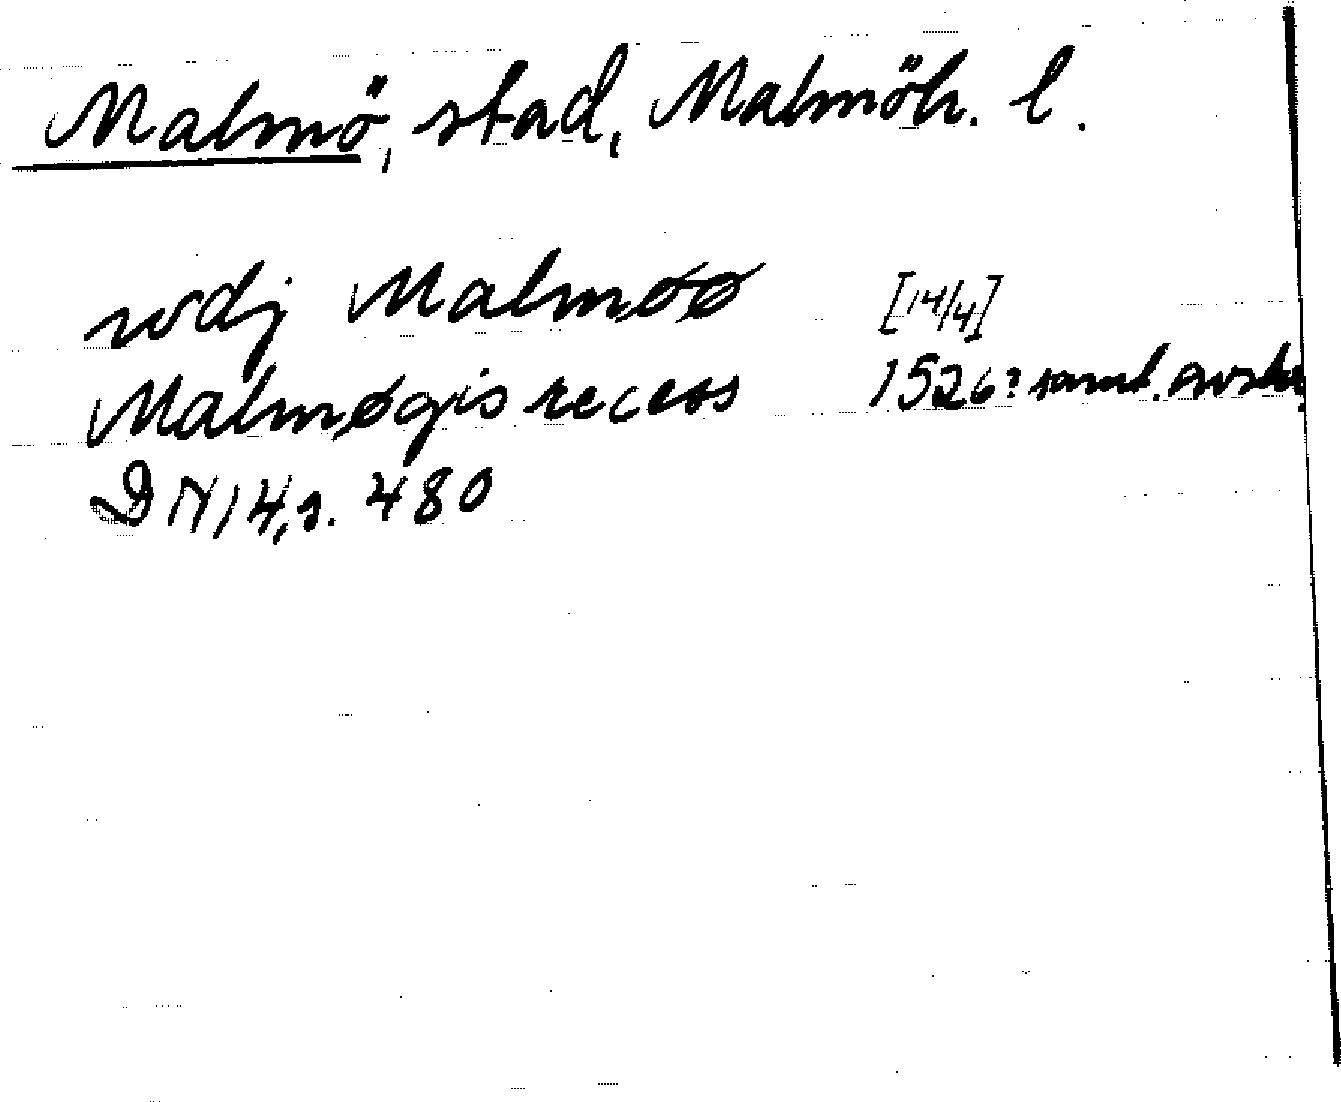 Malmö, stad, Malmöh. l.
wdj Malmøø [14/4]
Malmøgis recess 1526? saml. avskr.
DN 14, s. 480